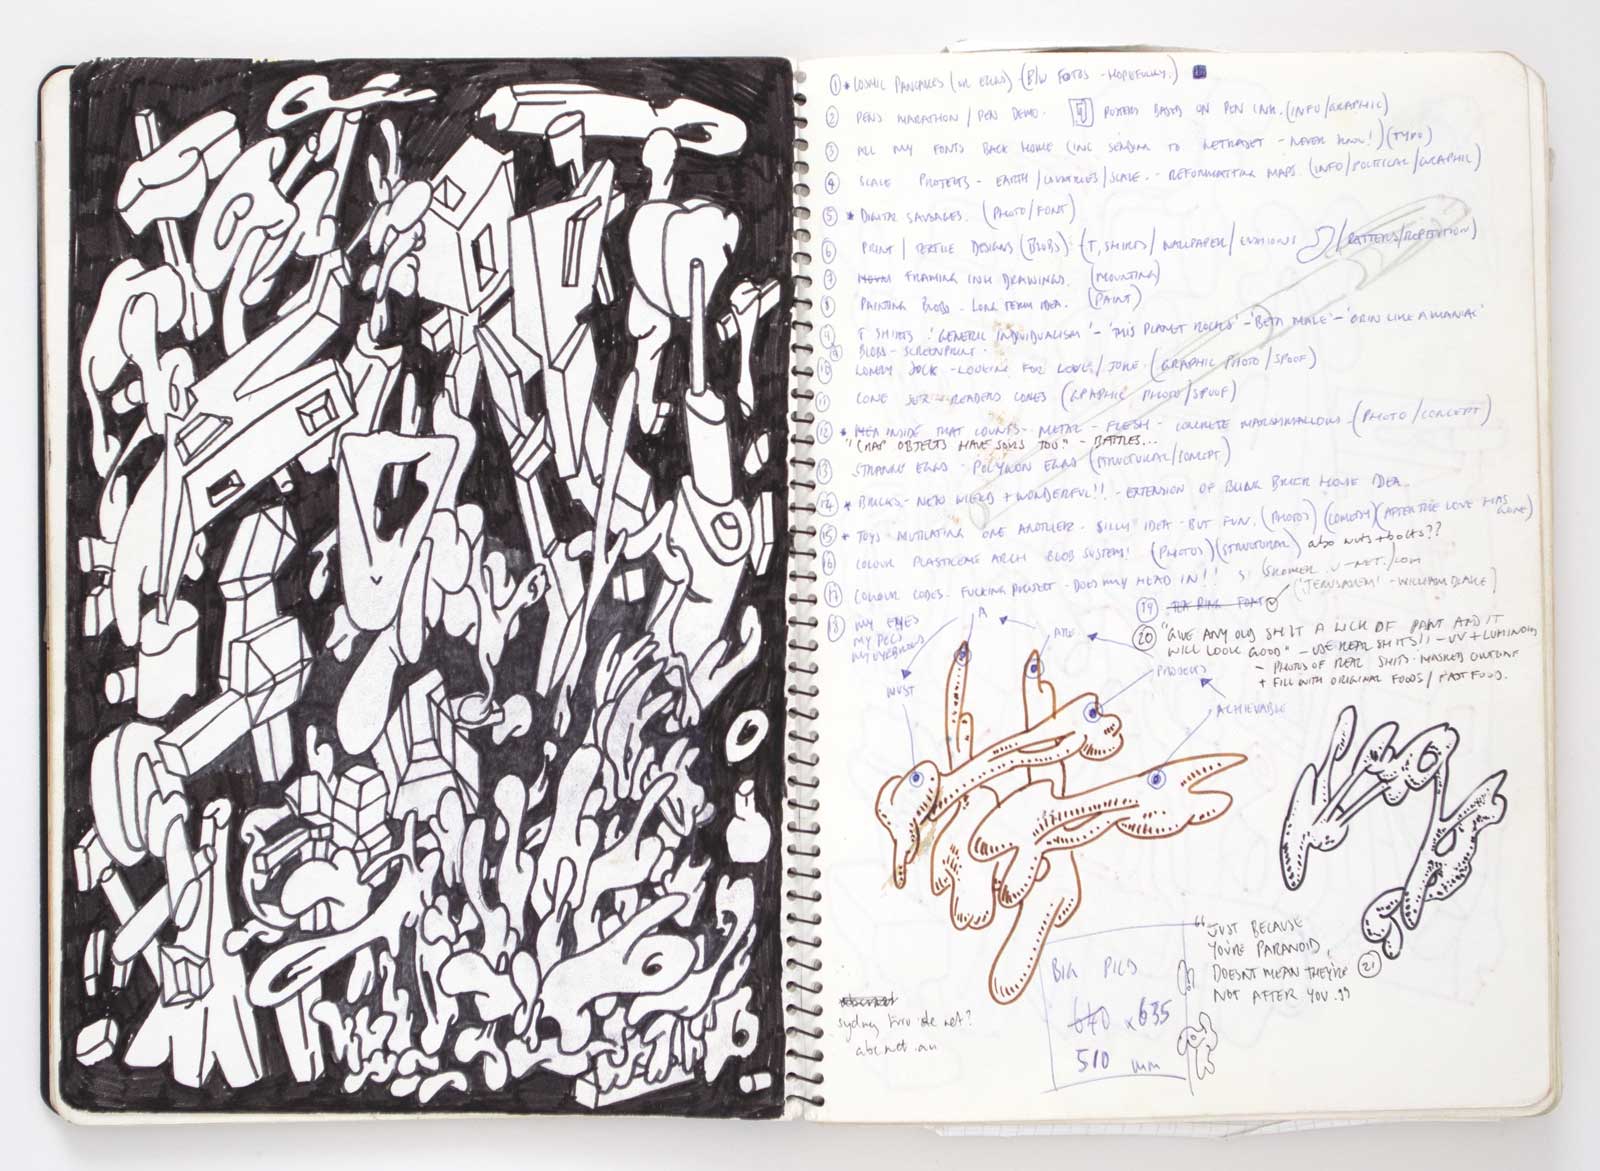 ① * COSMIC PANCAKES (OR EGGS) (B/W FOTOS - HOPEFULLY.)
② PENS MARATHON / PEN DEMO. POSTERS BASED ON PEN INK. (INFO/GRAPHIC)
③ ALL MY FONTS BACK HOME (INC SENDING TO LETRASET - NEVER KNOW!) (TYPO)
④ SCALE PROJECTS - EARTH / COUNTRIES / SCALE. - REFORMATTING MAPS. (INFO/POLITICAL/GRAPHIC)
⑤ * DIGITAL SAUSAGES. (PHOTO/FONT)
⑥ PRINT / TEXTILE DESIGNS (BLOBS) (T, SHIRTS / WALLPAPER / CUSHIONS / PATTERNS/REPETITION)
⑦ FRAMING INK DRAWINGS. (MOUNTING)
⑧ PAINTING BLOBS - LONG TERM IDEA. (PAINT)
⑨ T SHIRTS 'GENERIC INDIVIDUALISM' - 'THIS PLANET ROCKS' - 'BETA MALE' - 'GRIN LIKE A MANIAC'
⑨ BLOBS - SCREENPRINT.
⑩ LONELY SOCK - LOOKING FOR LOVE / JOKE. (GRAPHIC PHOTO / SPOOF)
⑪ CONE SER READERS CONES (GRAPHIC PHOTO/SPOOF)
⑫ * INSIDE THAT COUNTS - METAL - FLESH - CONCRETE MARSHMALLOWS (PHOTO / CONCEPT)
"CRAP OBJECTS HAVE SOULS TOO" - BATTLES...
⑬ EGGS - POLYGON EGGS (STRUCTURAL/CONCEPT)
⑭ * BRICKS - NEW WEIRD + WONDERFUL!! - EXTENSION OF BRICK HOUSE IDEA.
⑮ * TOYS MUTILATING ONE ANOTHER - SILLY IDEA - BUT FUN. (PHOTOS) (COMEDY) (AFTER THE LOVE HAS GONE)
⑯ COLOUR PLASTICINE ARCH BLOB SYSTEMS! (PHOTOS) (STRUCTURAL) also nuts + bolts??
⑰ COLOUR CODES - FUCKING PROJECT - DOES MY HEAD IN!!
⑱ MY EYES
MY PECS
MY EYEBROWS
A
ARE
MUST
PROJECTS
ACHIEVABLE
⑲ FONT ('JERUSALEM' - WILLIAM BLAKE)
⑳ "GIVE ANY OLD SHIT A LICK OF PAINT AND IT
WILL LOOK GOOD" - USE REAL SHITS!! - UV + LUMINOUS
- PHOTOS OF REAL SHITS - MASKED OUTLINE
+ FILL WITH ORIGINAL FOODS / FAST FOOD.
"JUST BECAUSE
YOU'RE PARANOID,
DOESN'T MEAN THEY'RE ㉑
NOT AFTER YOU."
BIG PICS
640 x 635
510 mm
sydney
abc.net.au